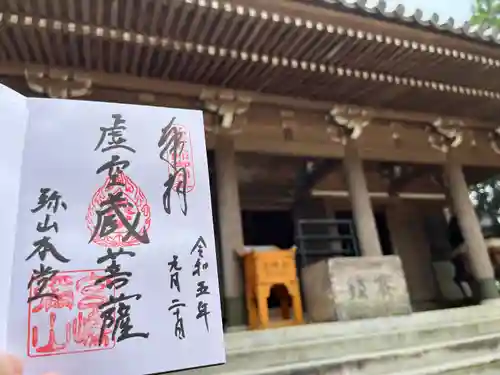 奉拝
令和五年
九月二十日
虚空蔵菩薩
弥山本堂